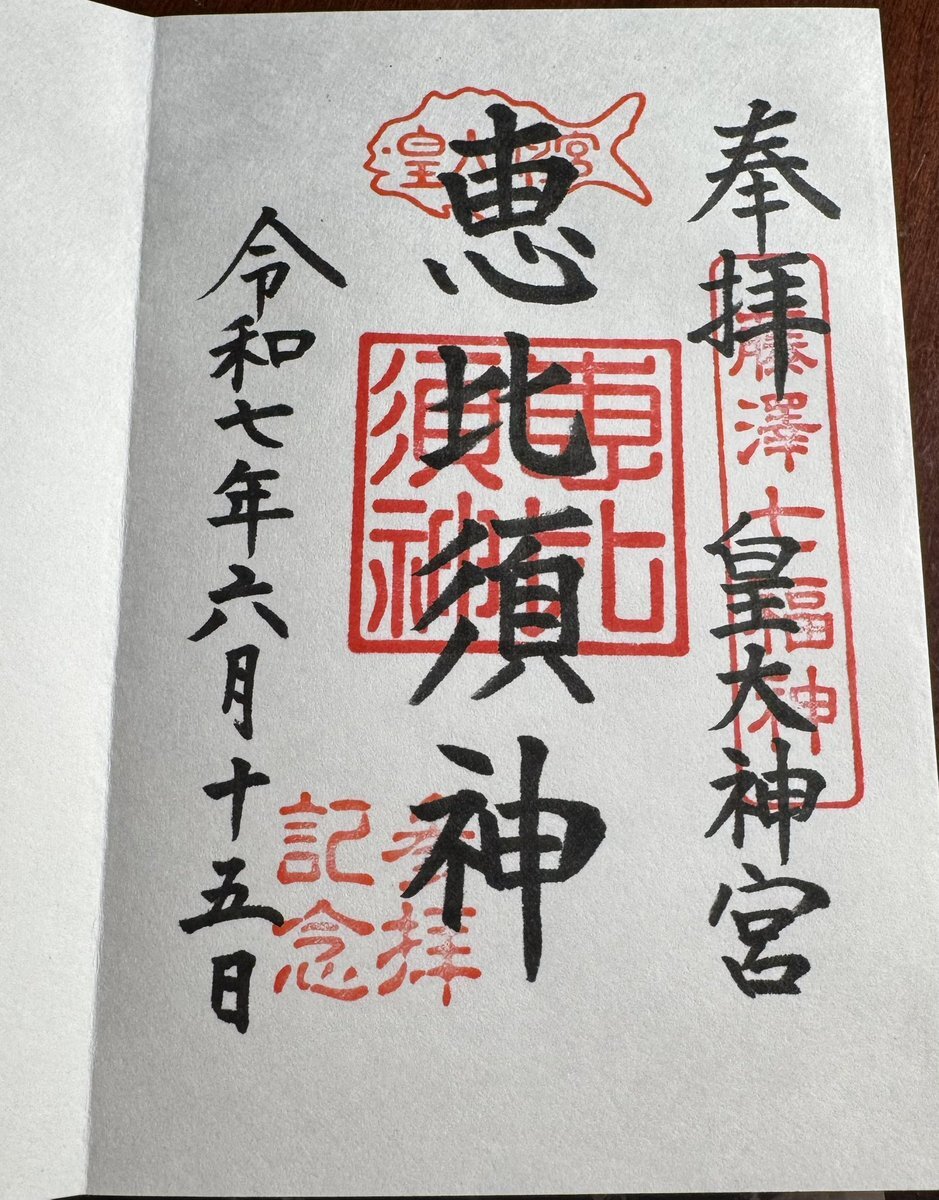 奉拝
皇大神宮
藤澤七福神
皇大神宮
恵比須神
恵比須神
参拝
記念
令和七年六月十五日